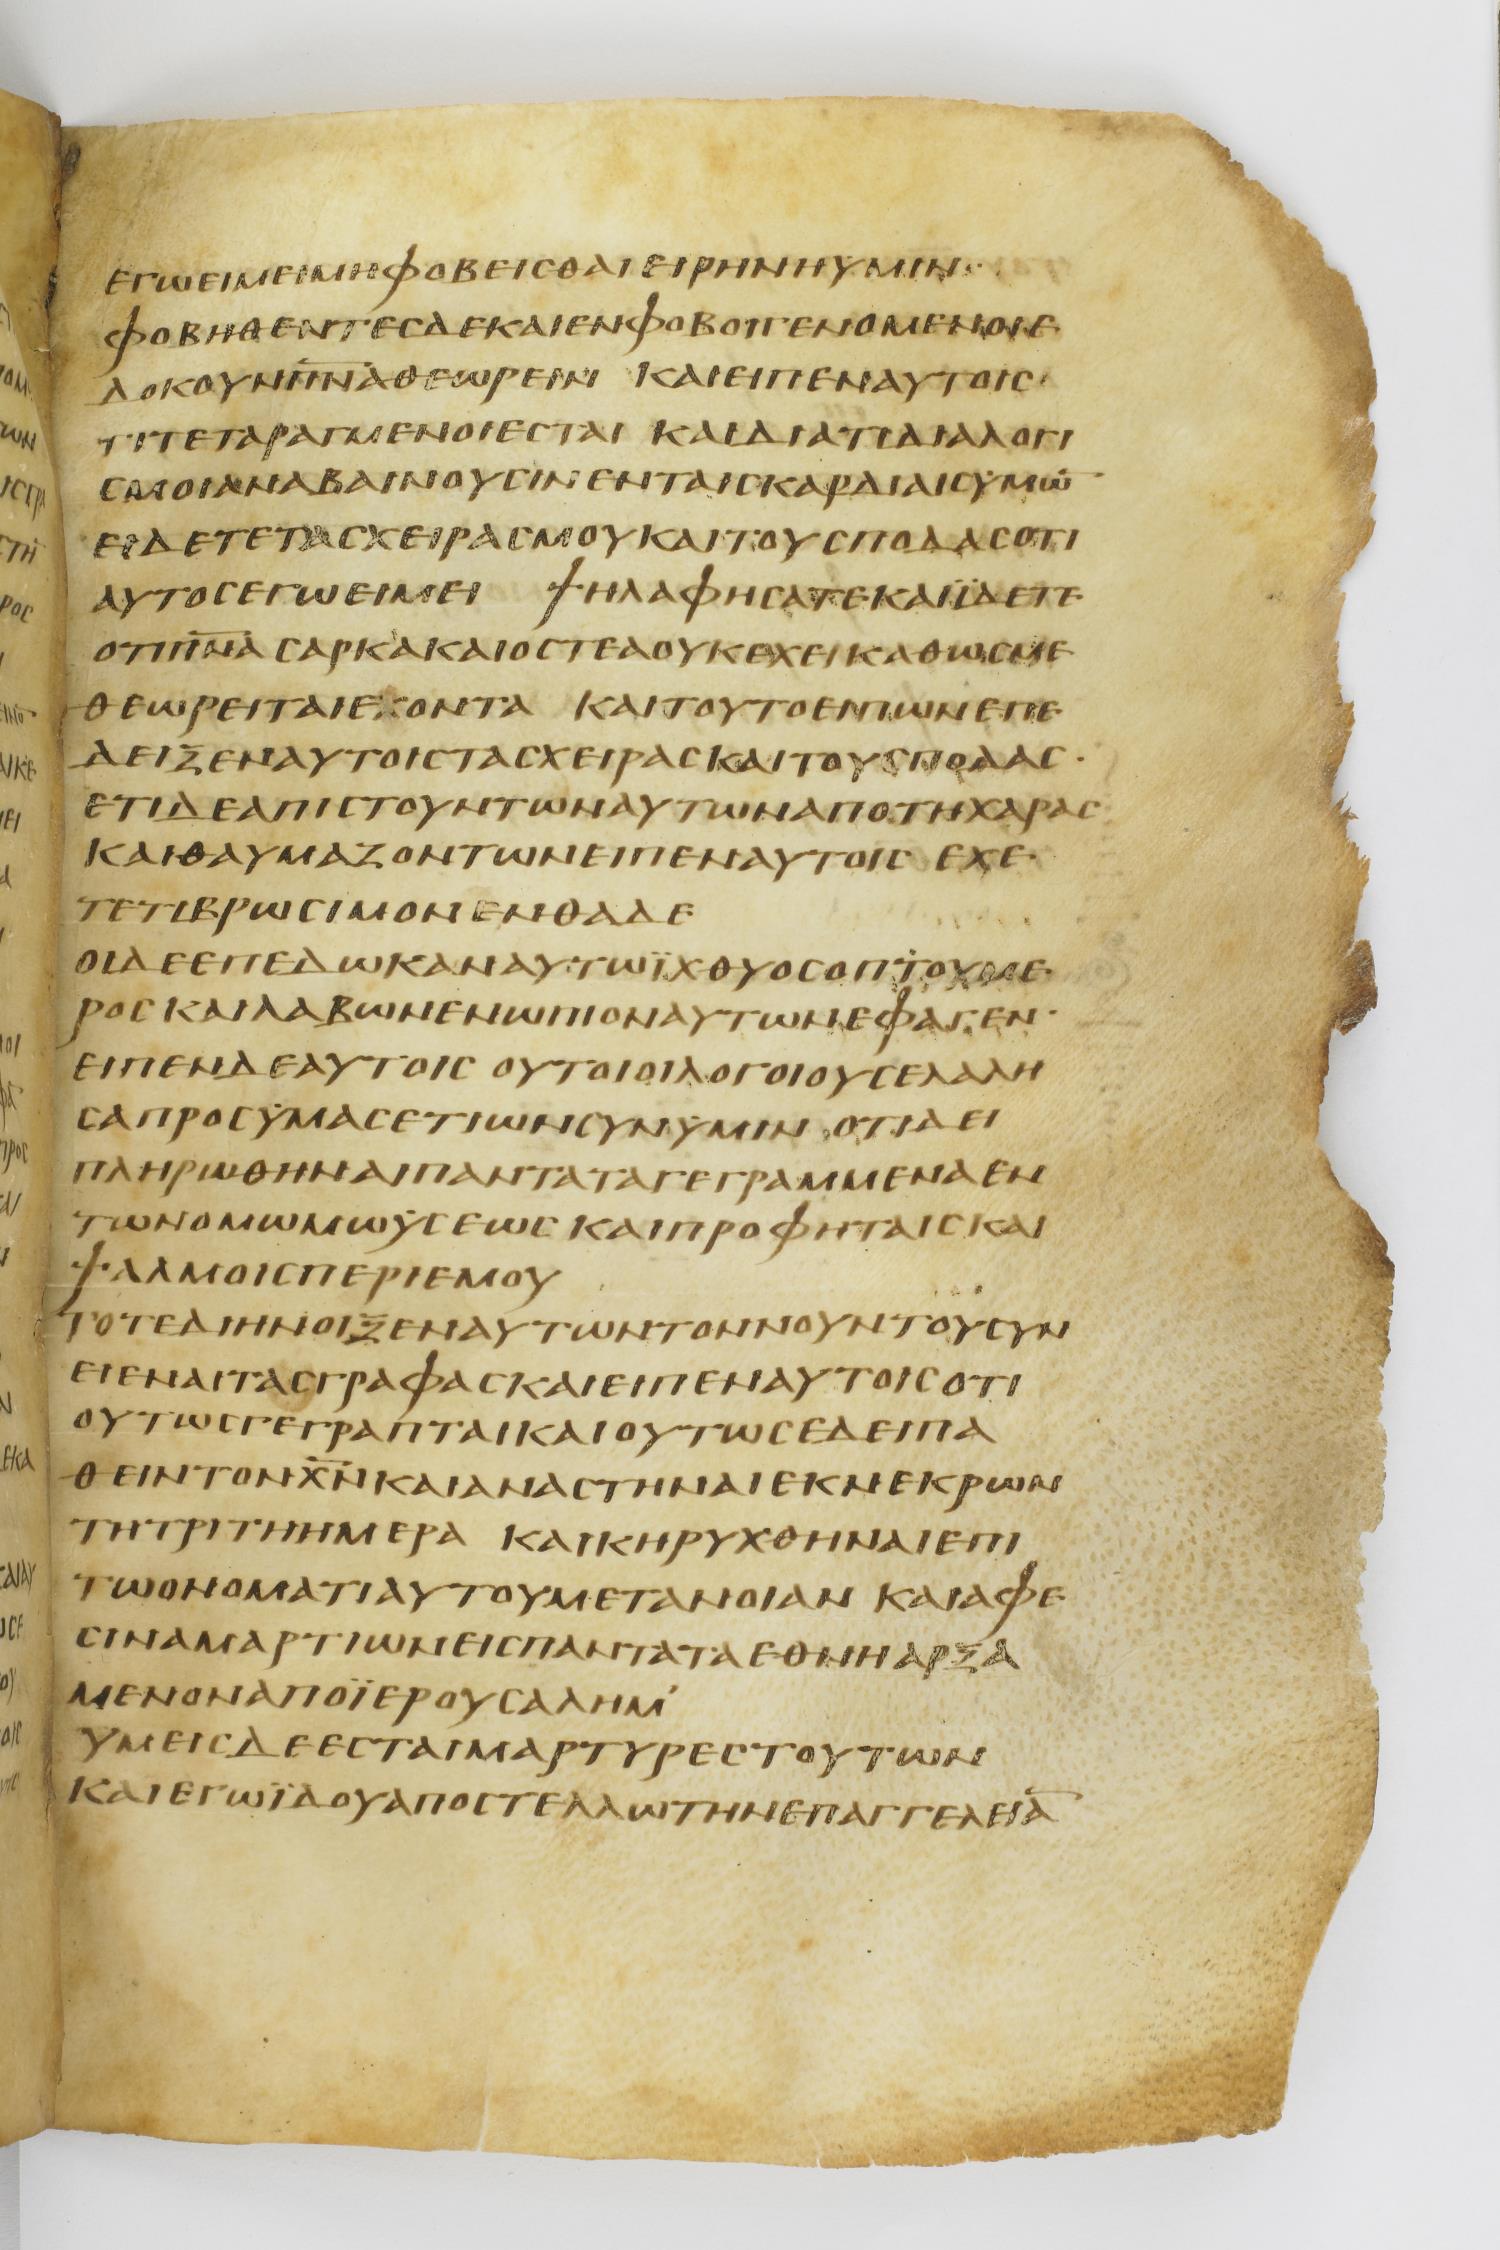 ΕΓΩΕΙΜΕΙΜΗΦΟΒΕΙΣΘΑΙΕΙΡΗΝΗΥΜΙΝ·
ΦΟΒΗΘΕΝΤΕΣΔΕΚΑΙΕΝΦΟΒΟΙΓΕΝΟΜΕΝΟΙΕ
ΔΟΚΟΥΝΠ̅Ν̅Α̅ΘΕΩΡΕΙΝ ΚΑΙΕΙΠΕΝΑΥΤΟΙΣ
ΤΙΤΕΤΑΡΑΓΜΕΝΟΙΕΣΤΑΙ ΚΑΙΔΙΑΤΙΔΙΑΛΟΓΙ
ΣΜΟΙΑΝΑΒΑΙΝΟΥΣΙΝΕΝΤΑΙΣΚΑΡΔΙΑΙΣΫΜΩ̅
ΕΙΔΕΤΕΤΑΣΧΕΙΡΑΣΜΟΥΚΑΙΤΟΥΣΠΟΔΑΣΟΤΙ
ΑΥΤΟΣΕΓΩΕΙΜΕΙ ΨΗΛΑΦΗΣΑΤΕΚΑΙΪΔΕΤΕ
ΟΤΙΠ̅Ν̅Α̅ΣΑΡΚΑΚΑΙΟΣΤΕΑΟΥΚΕΧΕΙΚΑΘΩΣΜΕ
ΘΕΩΡΕΙΤΑΙΕΧΟΝΤΑ ΚΑΙΤΟΥΤΟΕΙΠΩΝΕΠΕ
ΔΕΙΞΕΝΑΥΤΟΙΣΤΑΣΧΕΙΡΑΣΚΑΙΤΟΥΣΠΟΔΑΣ·
ΕΤΙΔΕΑΠΙΣΤΟΥΝΤΩΝΑΥΤΩΝΑΠΟΤΗΧΑΡΑΣ
ΚΑΙΘΑΥΜΑΖΟΝΤΩΝΕΙΠΕΝΑΥΤΟΙΣ ΕΧΕ
ΤΕΤΙΒΡΩΣΙΜΟΝΕΝΘΑΔΕ
ΟΙΔΕΕΠΕΔΩΚΑΝΑΥΤΩΪΧΘΥΟΣΟΠΤΟΥΜΕ
ΡΟΣΚΑΙΛΑΒΩΝΕΝΩΠΙΟΝΑΥΤΩΝΕΦΑΓΕΝ·
ΕΙΠΕΝΔΕΑΥΤΟΙΣ ΟΥΤΟΙΟΙΛΟΓΟΙΟΥΣΕΛΑΛΗ
ΣΑΠΡΟΣΫΜΑΣΕΤΙΩΝΣΥΝΫΜΙΝ ΟΤΙΔΕΙ
ΠΛΗΡΩΘΗΝΑΙΠΑΝΤΑΤΑΓΕΓΡΑΜΜΕΝΑΕΝ
ΤΩΝΟΜΩΜΩΫΣΕΩΣΚΑΙΠΡΟΦΗΤΑΙΣΚΑΙ
ΨΑΛΜΟΙΣΠΕΡΙΕΜΟΥ
ΤΟΤΕΔΙΗΝΟΙΞΕΝΑΥΤΩΝΤΟΝΝΟΥΝΤΟΥΣΥΝ
ΕΙΕΝΑΙΤΑΣΓΡΑΦΑΣΚΑΙΕΙΠΕΝΑΥΤΟΙΣΟΤΙ
ΟΥΤΩΣΓΕΓΡΑΠΤΑΙΚΑΙΟΥΤΩΣΕΔΕΙΠΑ
ΘΕΙΝΤΟΝΧ̅Ν̅ΚΑΙΑΝΑΣΤΗΝΑΙΕΚΝΕΚΡΩΝ
ΤΗΤΡΙΤΗΗΜΕΡΑ ΚΑΙΚΗΡΥΧΘΗΝΑΙΕΠΙ
ΤΩΟΝΟΜΑΤΙΑΥΤΟΥΜΕΤΑΝΟΙΑΝ ΚΑΙΑΦΕ
ΣΙΝΑΜΑΡΤΙΩΝΕΙΣΠΑΝΤΑΤΑΕΘΝΗΑΡΞΑ
ΜΕΝΟΝΑΠΟΪΕΡΟΥΣΑΛΗΜ᾽
ΥΜΕΙΣΔΕΕΣΤΑΙΜΑΡΤΥΡΕΣΤΟΥΤΩΝ
ΚΑΙΕΓΩΪΔΟΥΑΠΟΣΤΕΛΛΩΤΗΝΕΠΑΓΓΕΛΕΙΑ̅